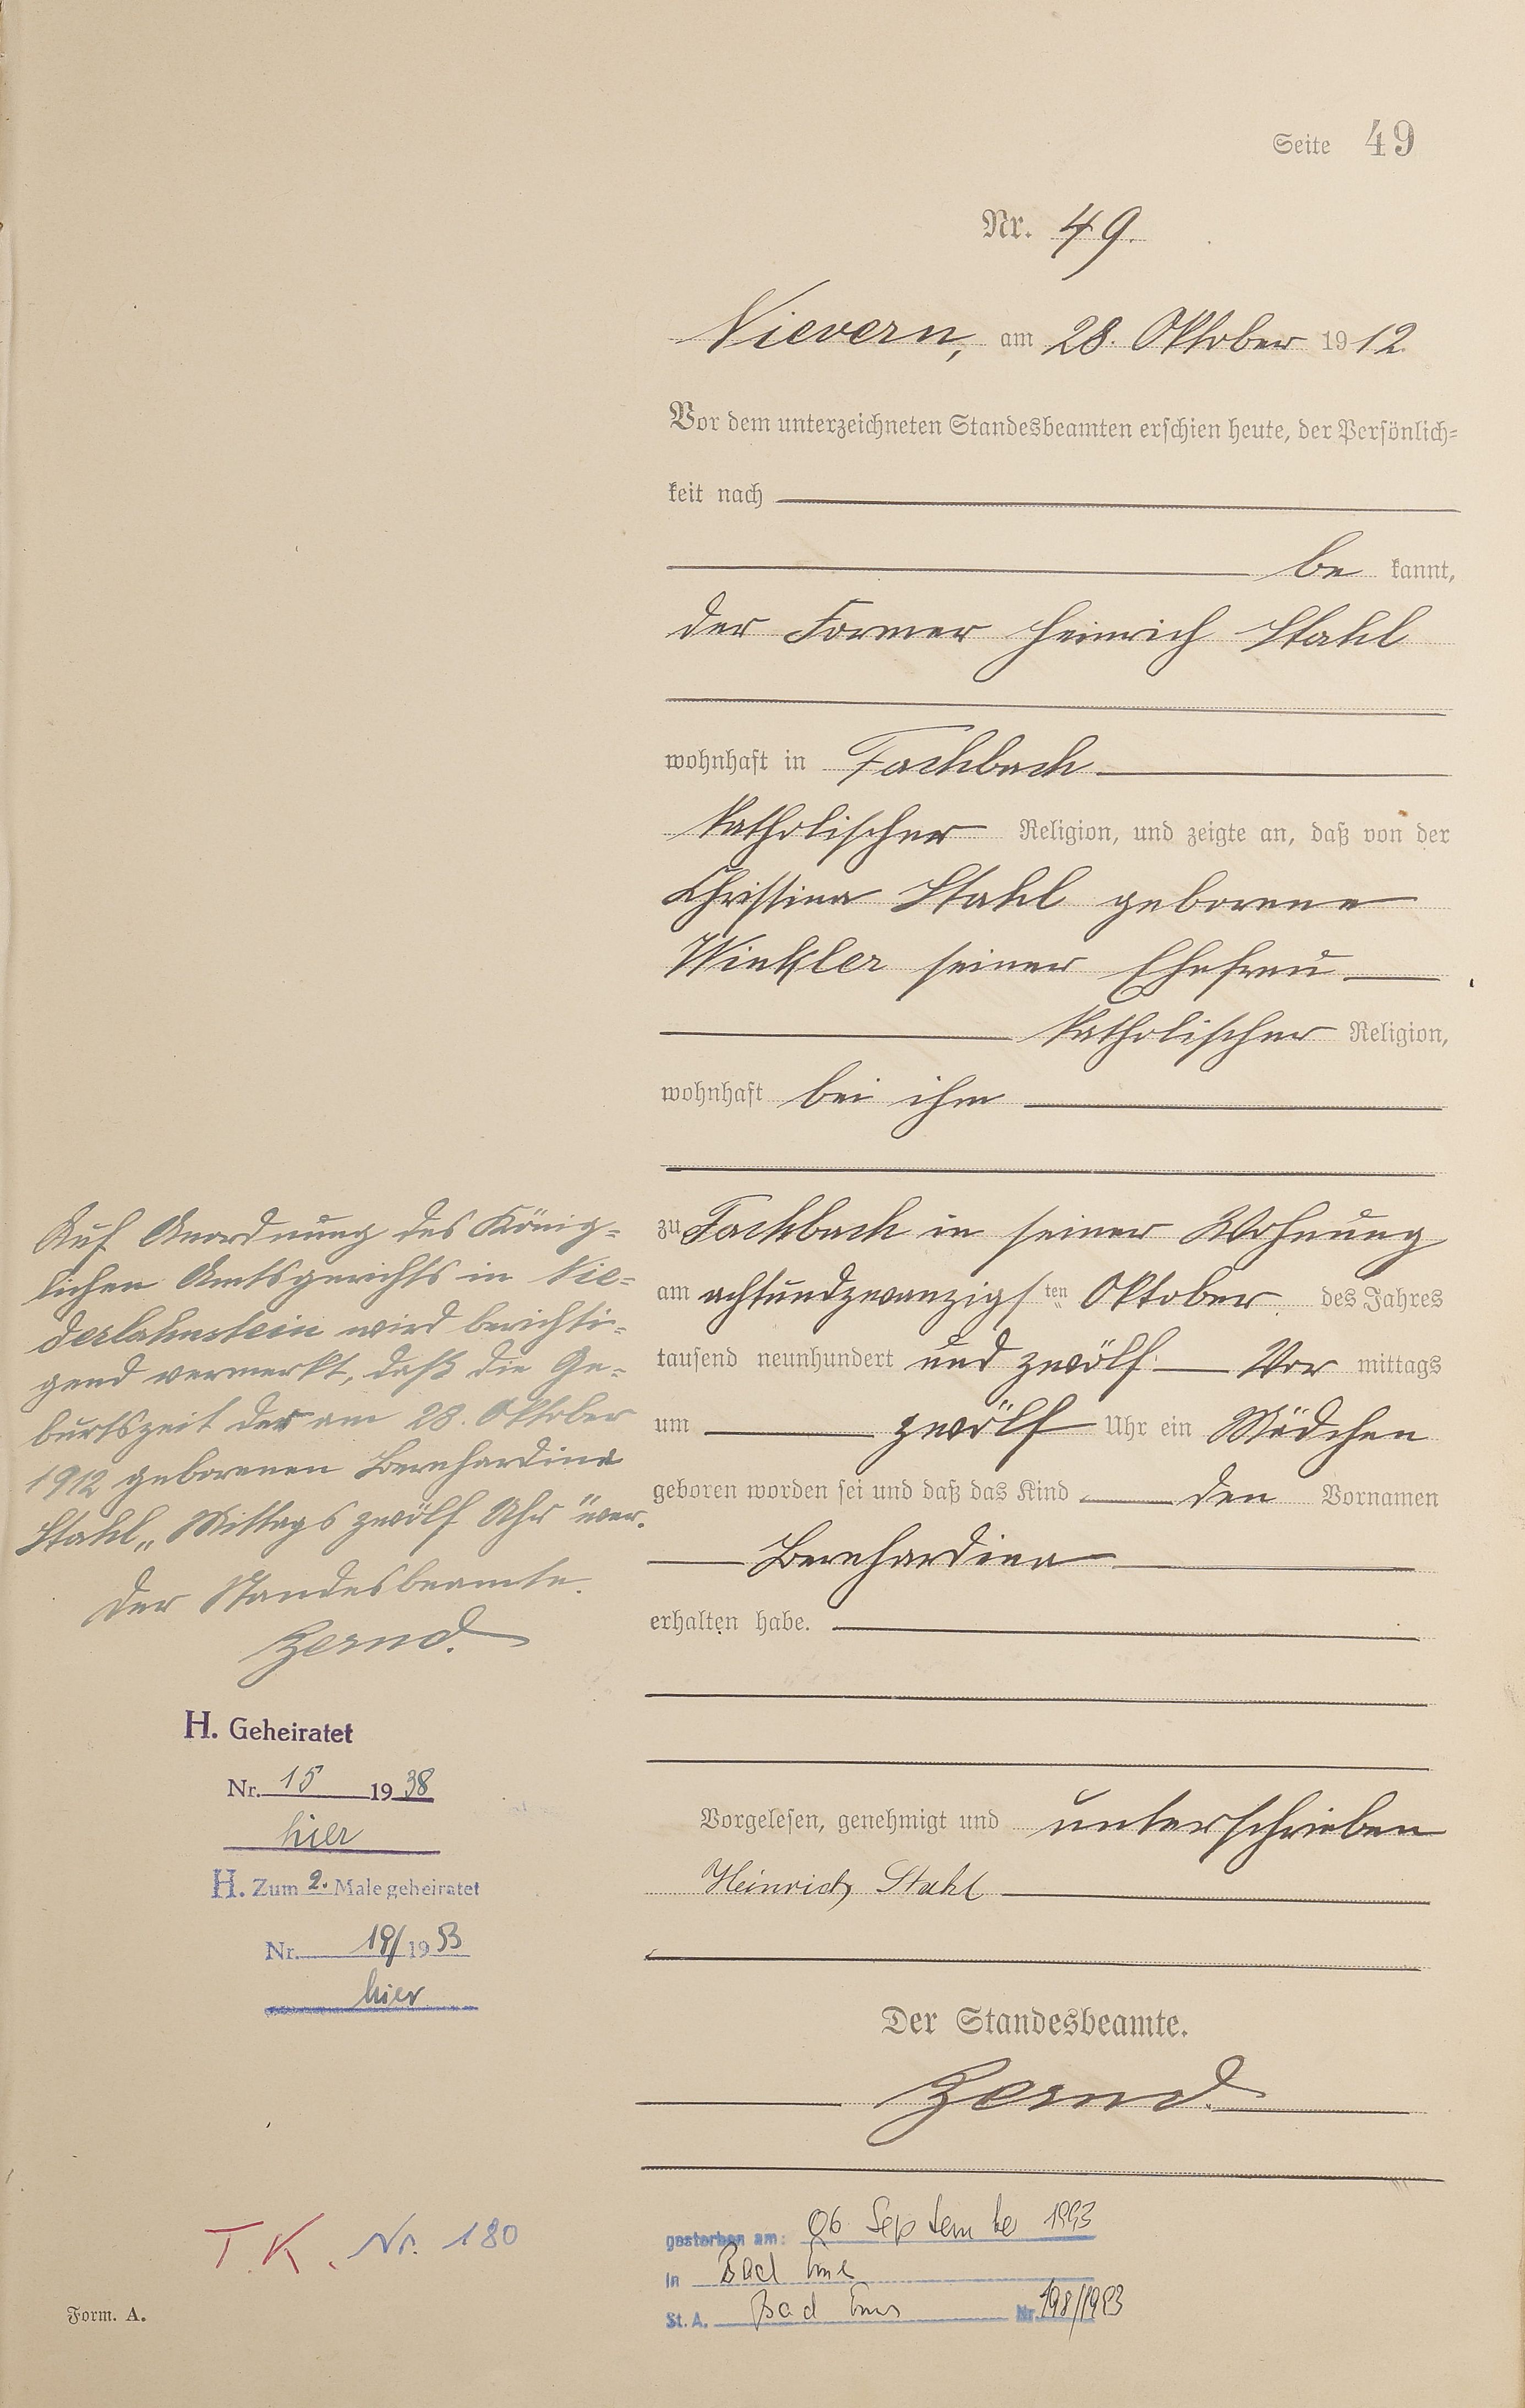 Seite 49
Nr. 49.
Nievern, am 28. Oktober 1912
Vor dem unterzeichneten Standesbeamten erschien heute, der Persönlich-
keit nach
be kannt,
der Former Heinrich Stahl
wohnhaft in Fachbach
katholischer Religion, und zeigte an, daß von der
Christina Stahl geborene
Winkler seiner Ehefrau
katholischer Religion,
wohnhaft bei ihm
zu Fachbach in seiner Wohnung
am achtundzwanzigsten Oktober des Jahres
tausend neunhundert und zwölf Vor mittags
um zwölf Uhr ein Mädchen
geboren worden sei und daß das Kind den Vornamen
Bernhardina
erhalten habe.
Vorgelesen, genehmigt und unterschrieben
Heinrich Stahl
Der Standesbeamte.
Zernd.
Auf Anordnung des König-
lichen Amtsgerichts in Nie-
derlahnstein wird berichti-
gend vermerkt, daß die Ge-
burtszeit der am 28. Oktober
1912 geborenen Bernhardina
Stahl „Mittags zwölf Uhr" war.
Der Standesbeamte.
Zernd.
H. Geheiratet
Nr. 15 1938
hier
H. Zum 2. Male geheiratet
Nr. 19/1953
hier
T.K. Nr. 180
gestorben am: 06 September 1993
in Bad Ems
St. A. Bad Ems Nr. 198/1993
Form. A.